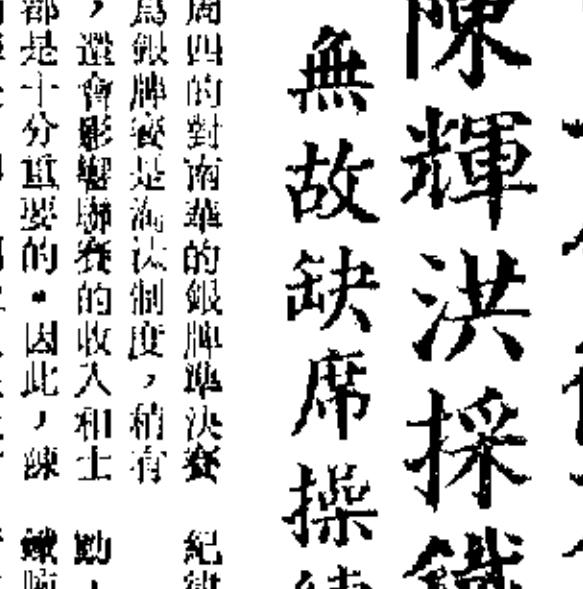 陳輝洪採鐵
無故缺席操練
周四的對南華的銀牌準決賽
爲銀牌賽是淘汰制度，稍有
，還會影響聯賽的收入和士
都是十分重要的。因此，陳
紀律
勵，
鐵腕